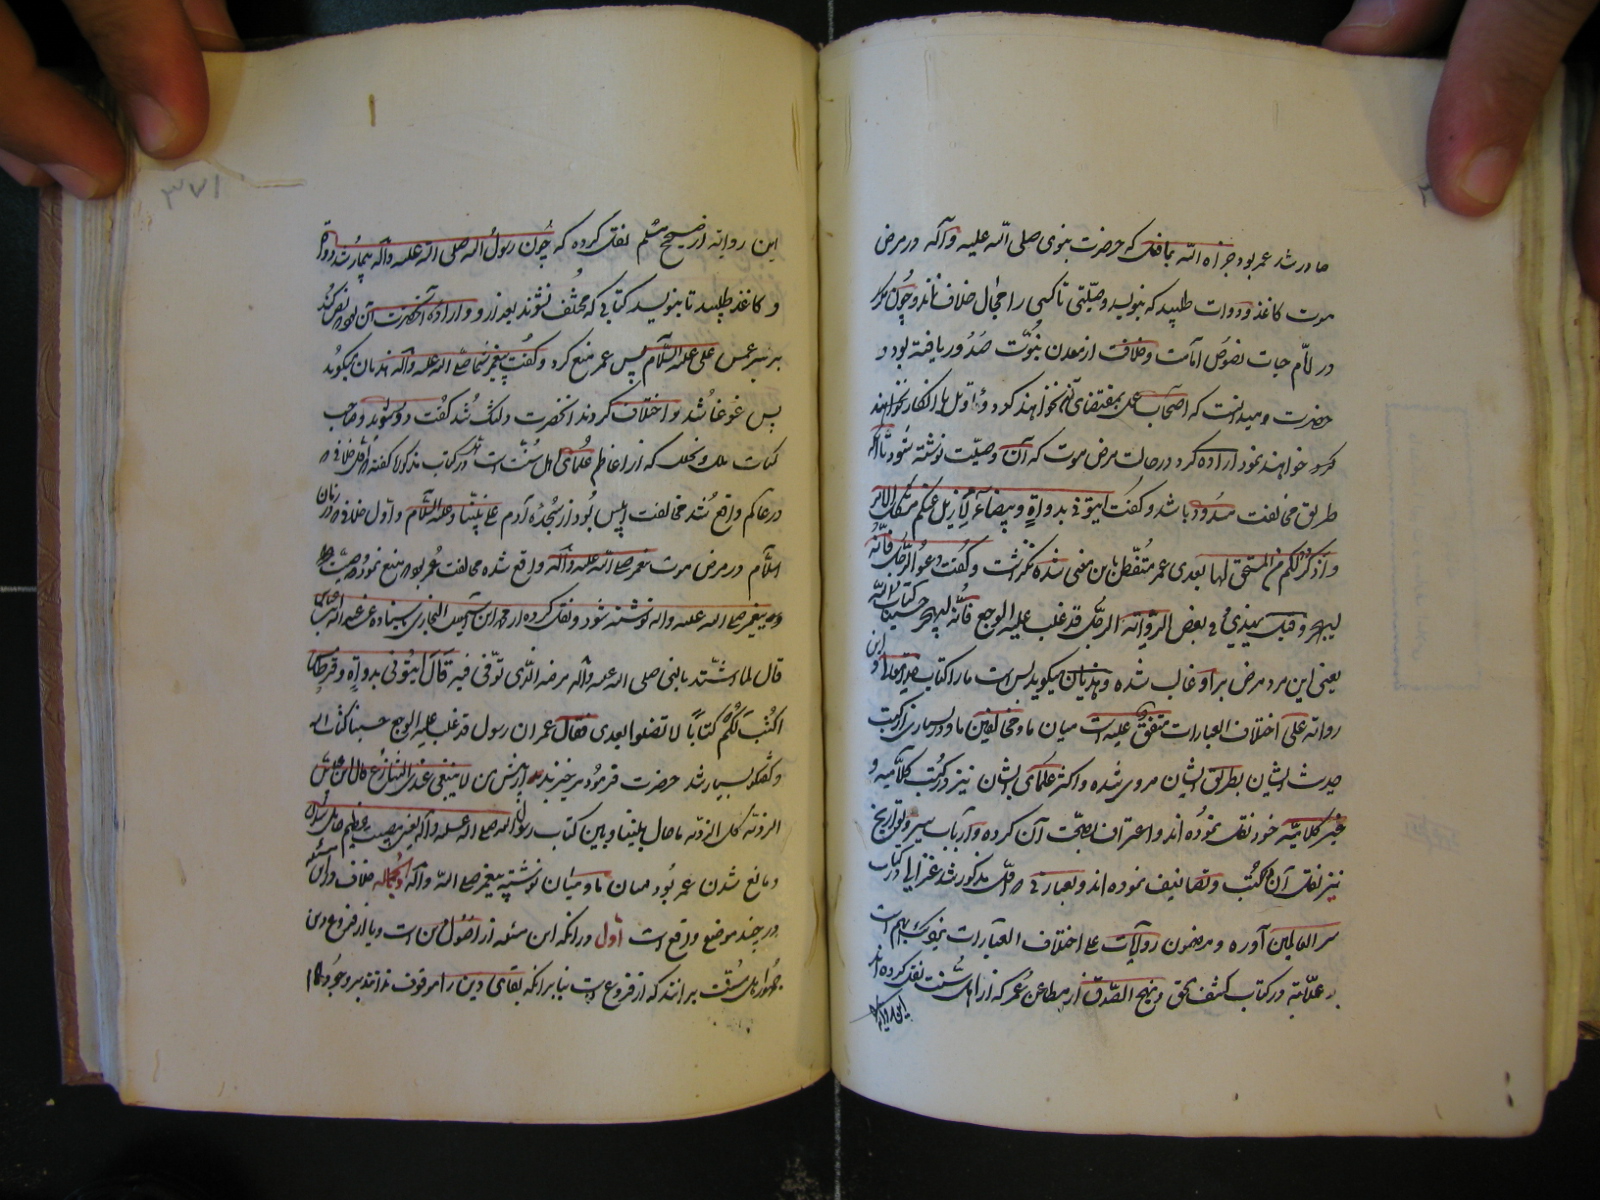 صادر شد عمر بود جزاه الله بما فعل که حضرت نبوی صلی الله علیه و آله در مرض
موت کاغذ و دوات طلبید که بنویسد وصیتی تا کسی را مجال خلاف نماند و چون
در نصوص امامت و خلافت از معدن نبوت صدور یافته بود و
حضرت میدانست که اصحاب بمقتضای آنها نخواهند کرد و تاویل یا انکار خواهند
کرد خواهند نمود اراده کرد در حالت مرض موت که آن وصیت نوشته شود تا آنکه
طریق مخالفت مسدود باشد و گفت ایتونی بدواة و بیضاء لازیل عنکم مشکل الامر
و اذکر لکم من المستحق لها بعدی عمر متفطن باین معنی شده نگذاشت و گفت دعوا الرجل فانه
لیهجر و قیل یهذی و فی بعض الروایة الرجل قد غلب علیه الوجع فانه لیهجر حسبنا کتاب الله
یعنی این مرد مرض بر او غالب شده و هذیان میگوید بس است ما را کتاب خدا و این
روایة علی اختلاف العبارات متفق علیه است میان ما و مخالفین ما و در بسیاری از کتب
حدیث ایشان بطریق ایشان مروی شده و اکثر علمای ایشان نیز در کتب کلامیه و
غیر کلامیه خود نقل نموده اند و اعتراف بصحت آن کرده و ارباب سیر و تواریخ
نیز نقل آن در کتب و تصانیف نموده اند و بعبارتی که مذکور شد غزالی در کتاب
سر العالمین آورده و مضمون روایات علی اختلاف العبارات است
و علامه در کتاب کشف الحق و نهج الصدق از مطاعن عمر که از اهل سنت نقل کرده اند
این روایة
این روایة از صحیح مسلم نقل کرده که چون رسول الله صلی الله علیه و آله بیمار شد دوات
و کاغذ طلبید تا بنویسد کتابی که مختلف نشوند بعد از او و اراده آنحضرت آن بود که نص کند
بر پسر عمش علی علیه السلام پس عمر منع کرد و گفت پیغمبر شما صلی الله علیه و آله هذیان میگوید
پس غوغا شد و اختلاف کردند آنحضرت دلتنگ شد گفت دور شوید و صاحب
کتاب ملل و نحل که از اعاظم علمای اهل سنت است در کتاب مذکور گفته اول خلافی که
در عالم واقع شد مخالفت ابلیس بود از سجده آدم علی نبینا و علیه السلام و اول خلافی که در زمان
اسلام در مرض موت پیغمبر صلی الله علیه و آله واقع شده مخالفت عمر بود که منع نمود
که پیغمبر صلی الله علیه و آله نوشته شود و نقل کرده از محمد ابن اسمعیل البخاری باسناده عن عبدالله بن عباس
قال لما اشتد بالنبی صلی الله علیه و آله مرضه الذی توفی فیه قال ایتونی بدواة و قرطاس
اکتب لکم کتابا لا تضلوا بعدی فقال عمر ان رسول قد غلب علیه الوجع حسبنا کتاب الله
و گفتگو بسیار شد حضرت فرمود برخیزید از پیش من لا ینبغی عندی التنازع قال ابن عباس
الرزیة کل الرزیة ما حال بیننا و بین کتاب رسول الله صلی الله علیه و آله یعنی مصیبت عظیم
و مانع شدن عمر بود میان ما و میان نوشته پیغمبر صلی الله و آله و بالجمله خلاف در این مسئله
در چند موضع واقع است اول در آنکه این مسئله از اصول دین است و یا از فروع دین
جمهور اهل سنت برانند که از فروع است بنابر آنکه بقای دین را موقوف ندانند بر وجود امام
۳۷۱